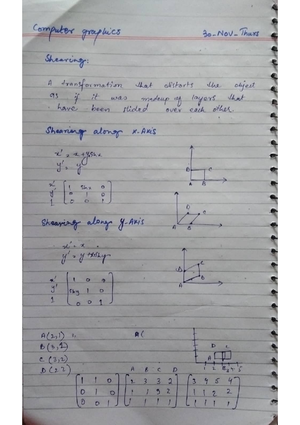 Computer graphics 30-NOV-Thurs
Shearing:
A transformation that distorts the object
as if it was madeup of layers that
have been slided over each other
Shearing along x-Axis
x' = x + y shx
y' = y
x' [1 shx 0]
y' [0 1 0]
1 [0 0 1]
Shearing along y-Axis
x' = x
y' = y + x shy
x' [1 0 0]
y' [shy 1 0]
1 [0 0 1]
A(2,1)
B(3,1)
C(3,2)
D(2,2)
A B C D
[1 1 0] [2 3 3 2] [3 4 5 4]
[0 1 0] [1 1 2 2] [1 1 2 2]
[0 0 1] [1 1 1 1] [1 1 1 1]